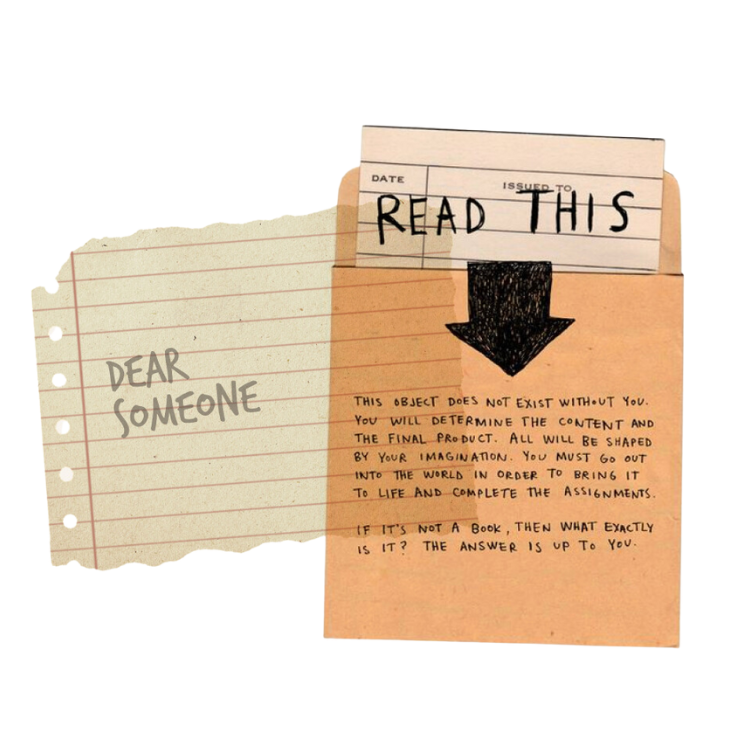 DATE
ISSUED TO
READ THIS
DEAR
SOMEONE
THIS OBJECT DOES NOT EXIST WITHOUT YOU.
YOU WILL DETERMINE THE CONTENT AND
THE FINAL PRODUCT. ALL WILL BE SHAPED
BY YOUR IMAGINATION. YOU MUST GO OUT
INTO THE WORLD IN ORDER TO BRING IT
TO LIFE AND COMPLETE THE ASSIGNMENTS.
IF IT'S NOT A BOOK, THEN WHAT EXACTLY
IS IT? THE ANSWER IS UP TO YOU.